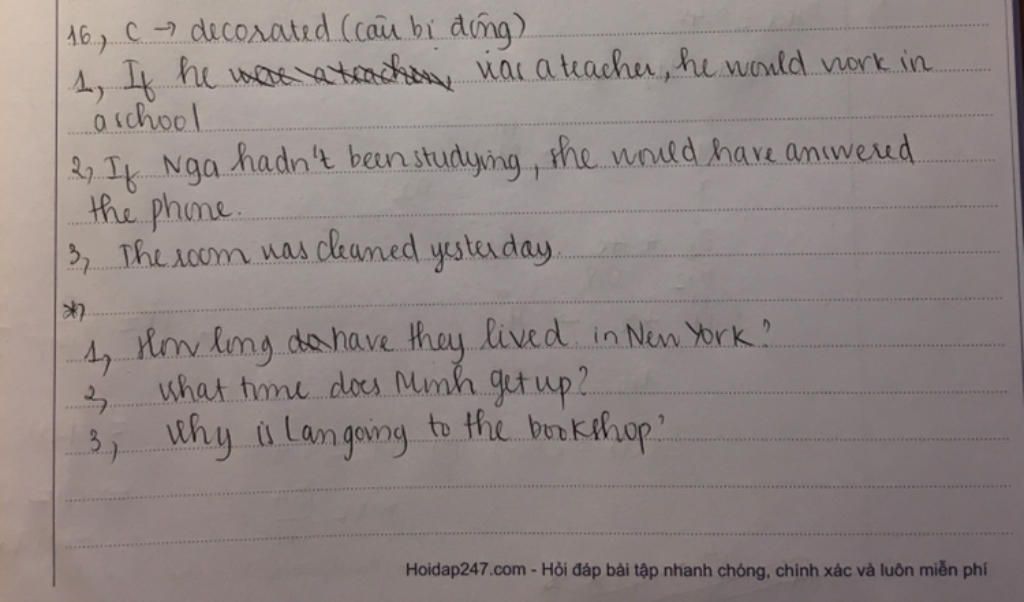 16, C → decorated (câu bị động)
1, If he was a teacher, was a teacher, he would work in
a school
2, If Nga hadn't been studying, she would have answered
the phone.
3, The room was cleaned yesterday.
*,
1, How long do have they lived in New York?
2, What time does Minh get up?
3, Why is Lan going to the bookshop?
Hoidap247.com - Hỏi đáp bài tập nhanh chóng, chính xác và luôn miễn phí